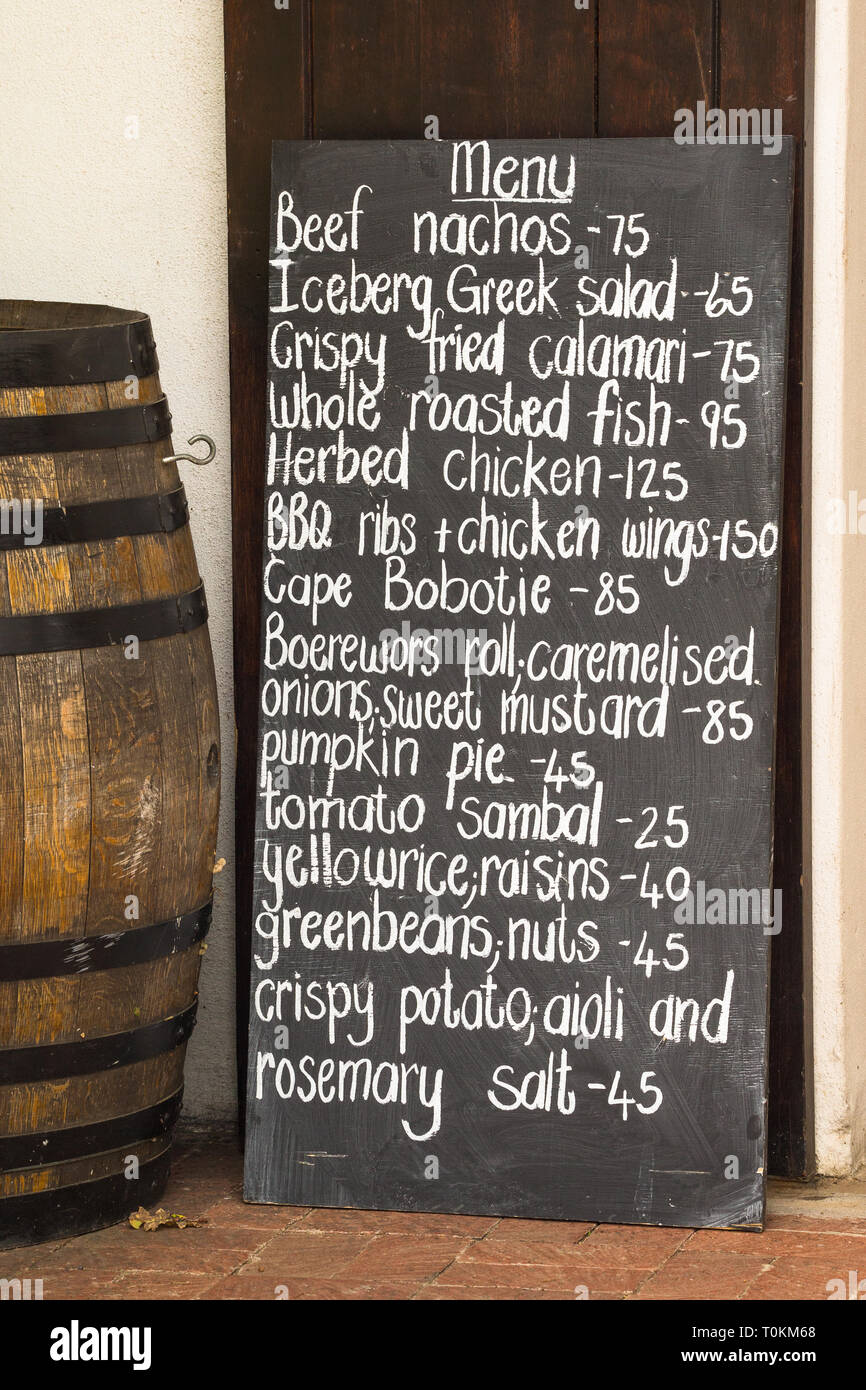 Menu
Beef nachos - 75
Iceberg Greek salad - 65
Crispy fried calamari - 75
Whole roasted fish - 95
Herbed chicken - 125
BBQ ribs + chicken wings - 150
Cape Bobotie - 85
Boerewors roll; caremelised.
onions; sweet mustard - 85
pumpkin pie - 45
tomato sambal - 25
yellowrice; raisins - 40
greenbeans; nuts - 45
crispy potato; aioli and
rosemary salt - 45
alamy
Image ID: T0KM68
www.alamy.com